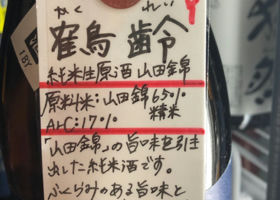 かく れい
隺鳥 齢
純米生原酒 山田錦
原料米:山田錦65%
精米
Alc:17%
「山田錦」の旨味を引き
出した純米酒です。
ふくらみのある旨味と